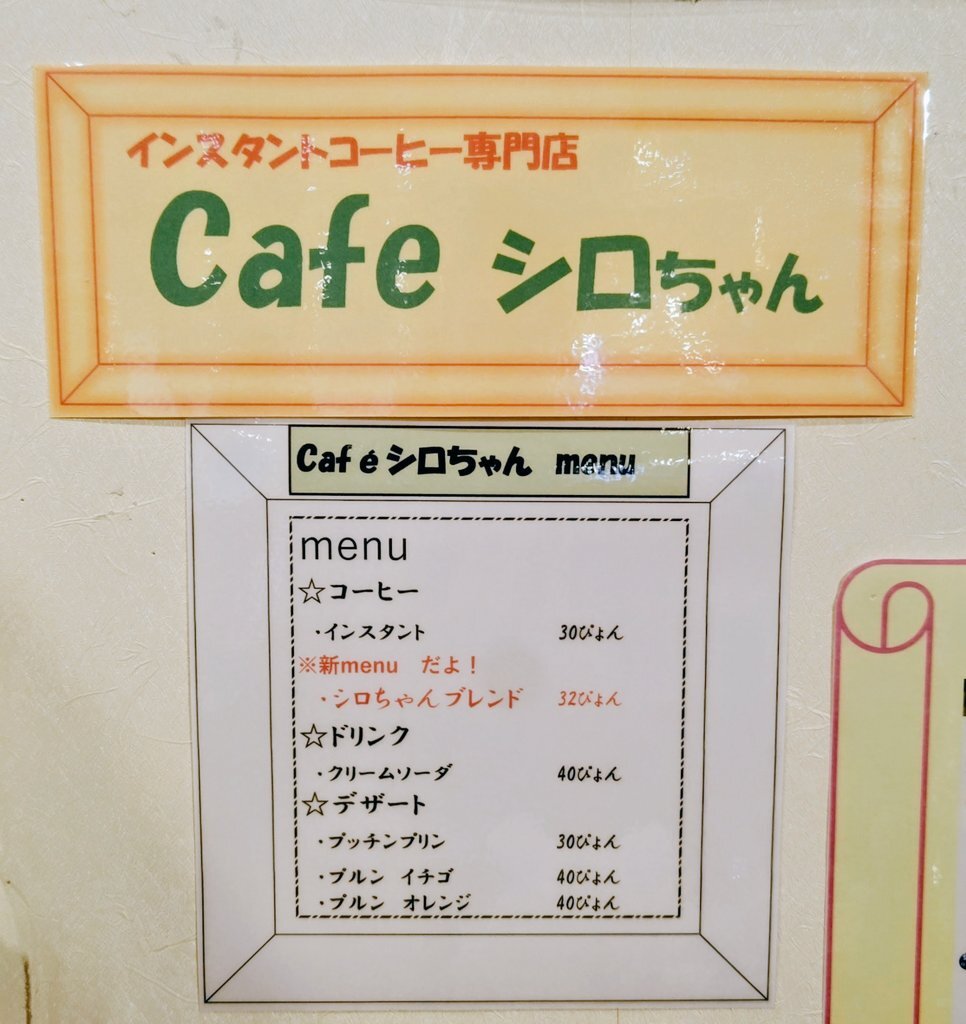 インスタントコーヒー専門店
Cafe シロちゃん
Café シロちゃん menu
menu
☆コーヒー
・インスタント 30ぴょん
※新menu だよ！
・シロちゃんブレンド 32ぴょん
☆ドリンク
・クリームソーダ 40ぴょん
☆デザート
・プッチンプリン 30ぴょん
・プルン イチゴ 40ぴょん
・プルン オレンジ 40ぴょん